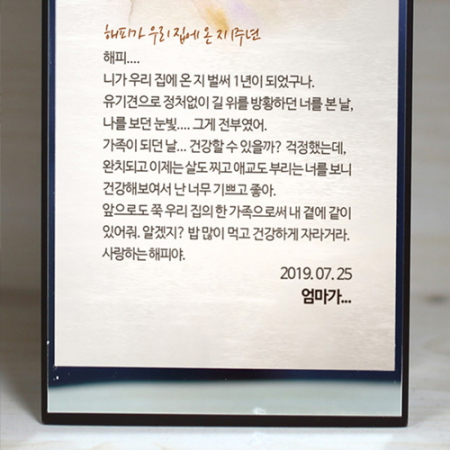 해피가 우리 집에 온 지 1주년
해피....
니가 우리 집에 온 지 벌써 1년이 되었구나.
유기견으로 정처없이 길 위를 방황하던 너를 본 날,
나를 보던 눈빛.... 그게 전부였어.
가족이 되던 날... 건강할 수 있을까? 걱정했는데,
완치되고 이제는 살도 찌고 애교도 부리는 너를 보니
건강해보여서 난 너무 기쁘고 좋아.
앞으로도 쭉 우리 집의 한 가족으로써 내 곁에 같이
있어줘. 알겠지? 밥 많이 먹고 건강하게 자라거라.
사랑하는 해피야.
2019. 07. 25
엄마가...